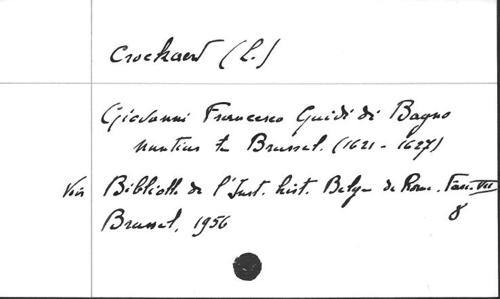 Crockaert (L.)
Giovanni Francesco Guidi di Bagno
nuntius te Brussel. (1621 - 1627)
Voir Biblioth. de l'Inst. hist. Belge de Rome. Fasc. VII
8
Brussel, 1956